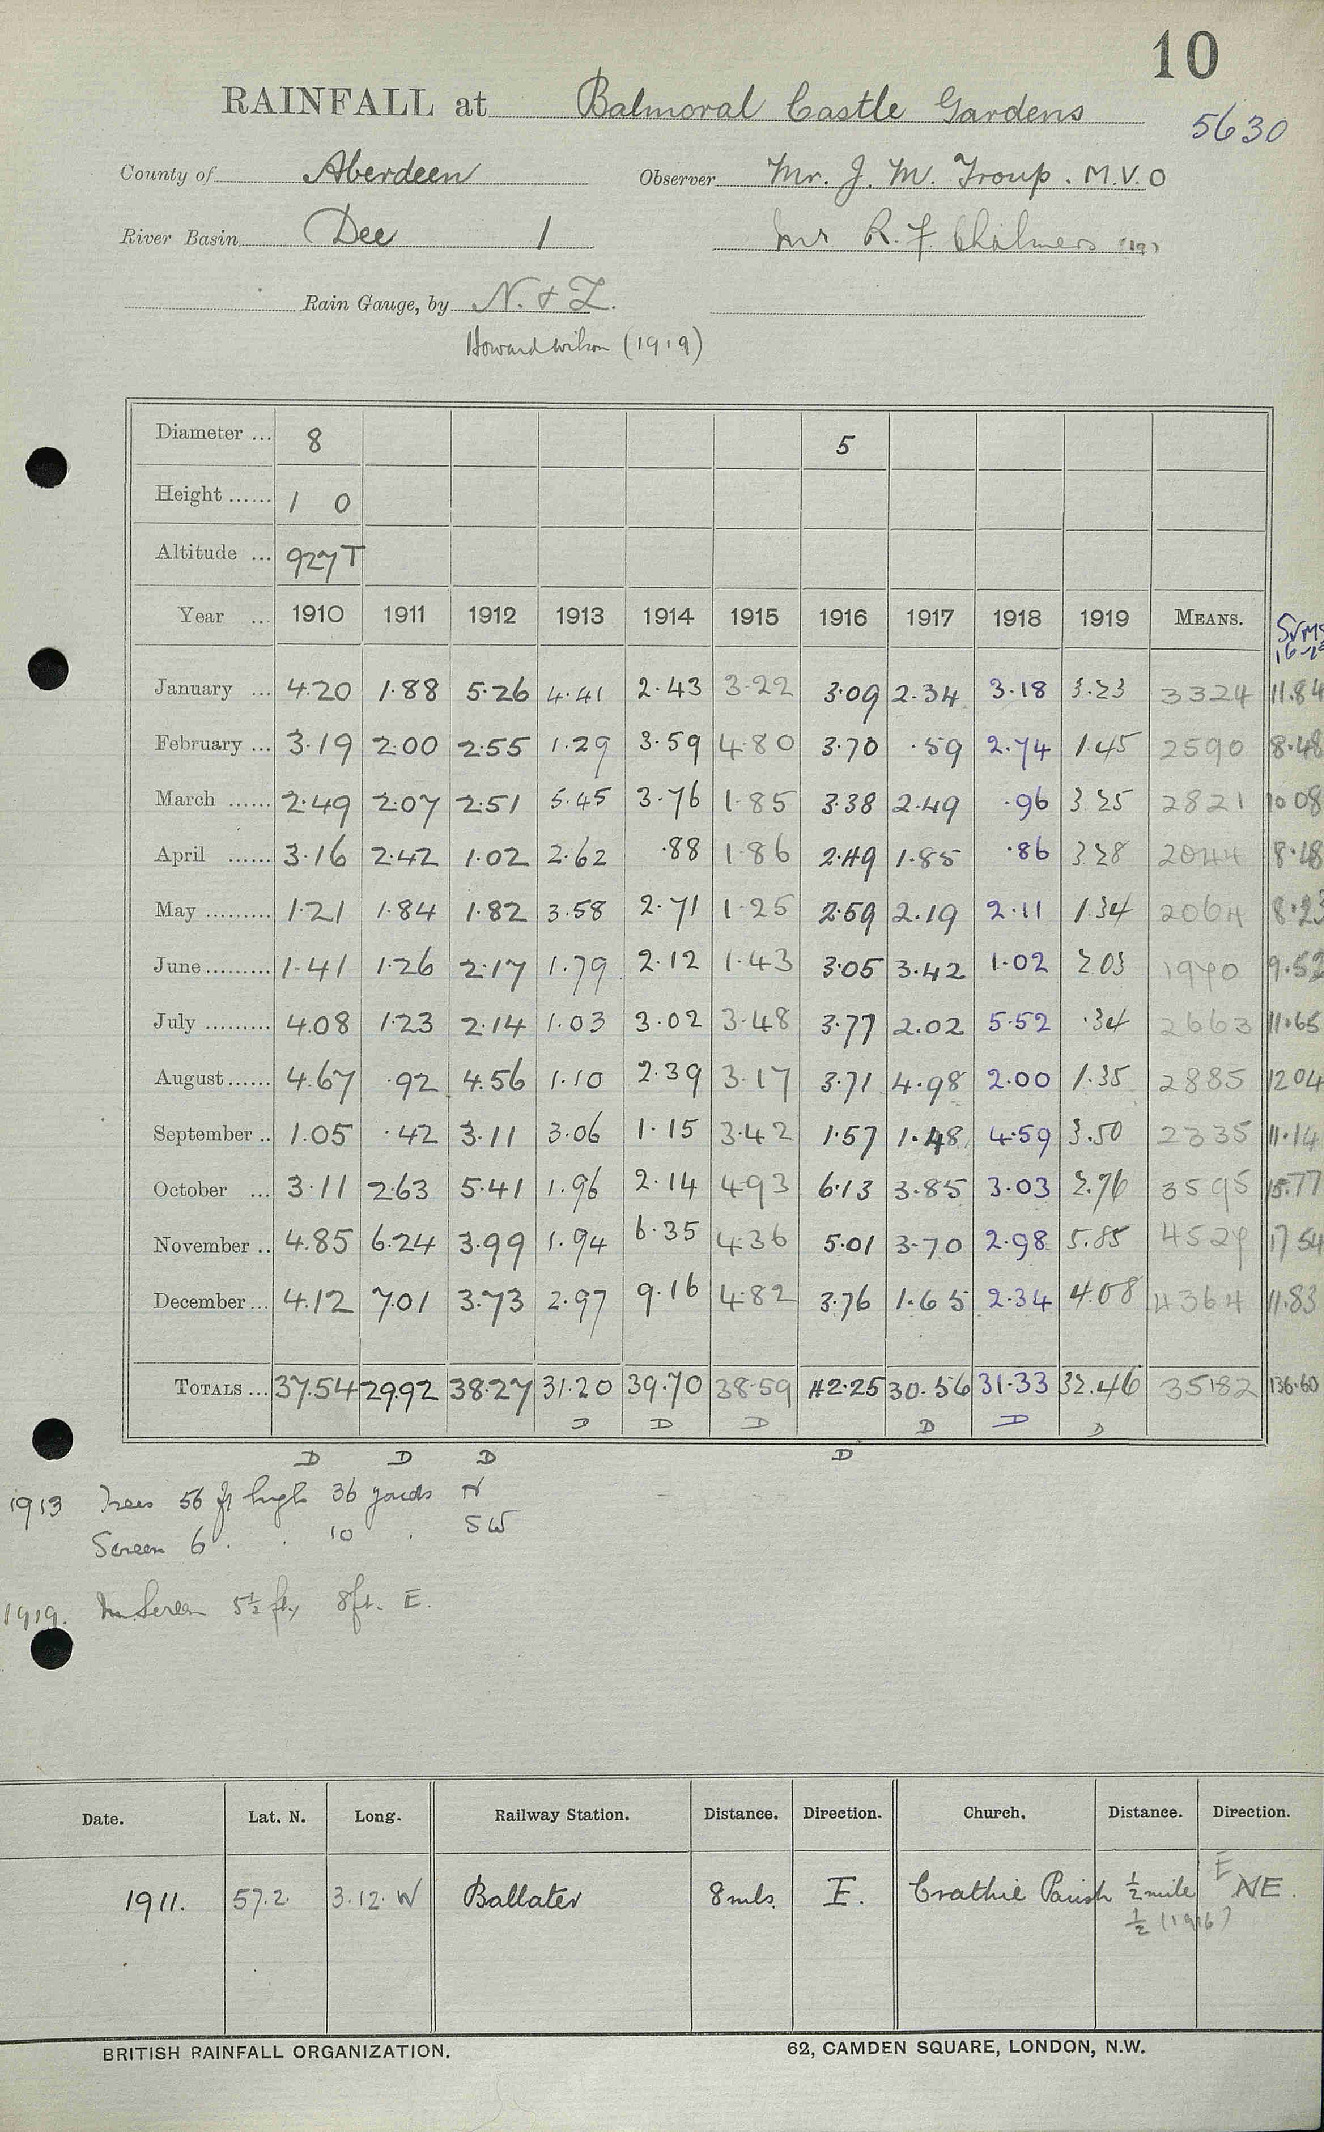 10
RAINFALL at Balmoral Castle Gardens
5630
County of Aberdeen Observer Mr. J. M. Troup. M.V.O
River Basin Dee 1 Mr R. F. Chalmers (19)
Rain Gauge, by N. & Z.
Howard Wilson (1919)
Diameter ... 8 5
Height ...... 1 0
Altitude ... 927 T
Year ... 1910 1911 1912 1913 1914 1915 1916 1917 1918 1919 MEANS. Sums
January ... 4.20 1.88 5.26 4.41 2.43 3.22 3.09 2.34 3.18 3.23 3324 11.84
February ... 3.19 2.00 2.55 1.29 3.59 4.80 3.70 .59 2.74 1.45 2590 8.48
March ...... 2.49 2.07 2.51 5.45 3.76 1.85 3.38 2.49 .96 3.25 2821 10 08
April ...... 3.16 2.42 1.02 2.62 .88 1.86 2.49 1.85 .86 3.28 2044 8.48
May ......... 1.21 1.84 1.82 3.58 2.71 1.25 2.59 2.19 2.11 1.34 2064 8.23
June ......... 1.41 1.26 2.17 1.79 2.12 1.43 3.05 3.42 1.02 2.03 1970 9.52
July ......... 4.08 1.23 2.14 1.03 3.02 3.48 3.77 2.02 5.52 .34 2663 11.65
August ...... 4.67 .92 4.56 1.10 2.39 3.17 3.71 4.98 2.00 1.35 2885 12 04
September .. 1.05 .42 3.11 3.06 1.15 3.42 1.57 1.48 4.59 3.50 2335 11.14
October ... 3.11 2.63 5.41 1.96 2.14 4.93 6.13 3.85 3.03 2.76 3595 15.77
November .. 4.85 6.24 3.99 1.94 6.35 4.36 5.01 3.70 2.98 5.85 4527 17 54
December ... 4.12 7.01 3.73 2.97 9.16 4.82 3.76 1.65 2.34 4.08 4364 11.83
TOTALS ... 37.54 29.92 38.27 31.20 39.70 38.59 42.25 30.56 31.33 32.46 35182 136.60
D D D D D D
D D D D
1913 Trees 56 ft high 36 yards N
Screen 6 . . 10 . SW
1919. Screen 5½ ft 8 ft. E.
Date. Lat. N. Long. Railway Station. Distance. Direction. Church. Distance. Direction.
1911. 57.2 3.12.W Ballater 8 mls. E. Crathie Parish ½ mile E NE.
½ (1916)
BRITISH RAINFALL ORGANIZATION. 62, CAMDEN SQUARE, LONDON, N.W.